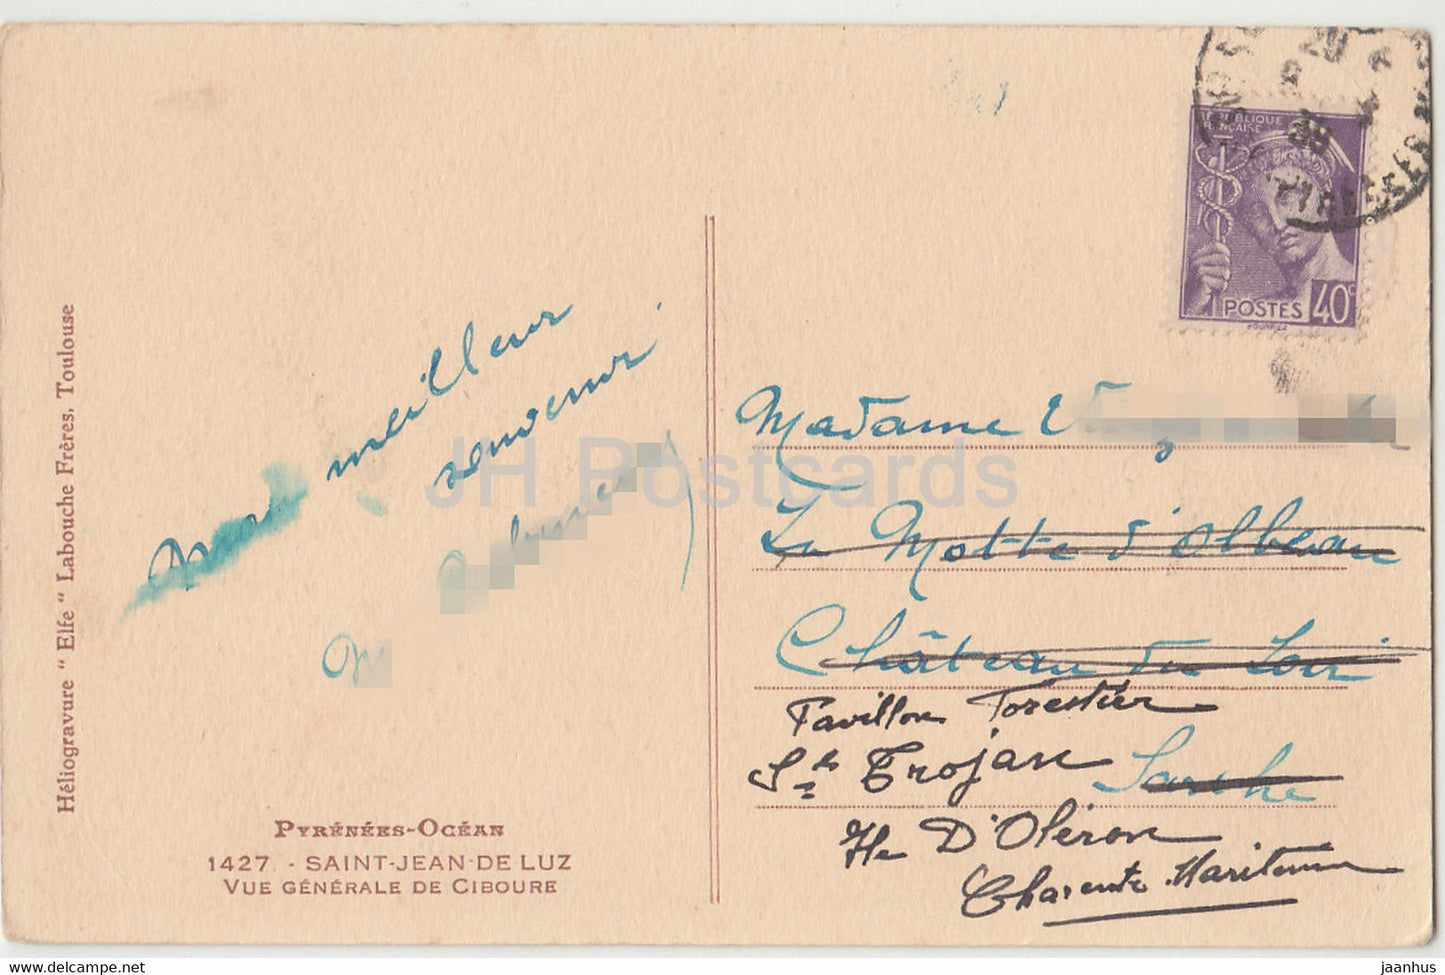 RÉPUBLIQUE
FRANÇAISE
POSTES 40c
39
Héliogravure " Elfe " Labouche Frères, Toulouse
meilleur
souvenir.
M
JH Postcards
Madame
La Motte d'Olbeau
Château du Loir
Pavillon Forestier
St Trojan Sarthe
Ile D'Oléron
Charente Maritime
PYRÉNÉES-OCÉAN
1427 - SAINT-JEAN-DE LUZ
VUE GÉNÉRALE DE CIBOURE
www.delcampe.net
jaanhus